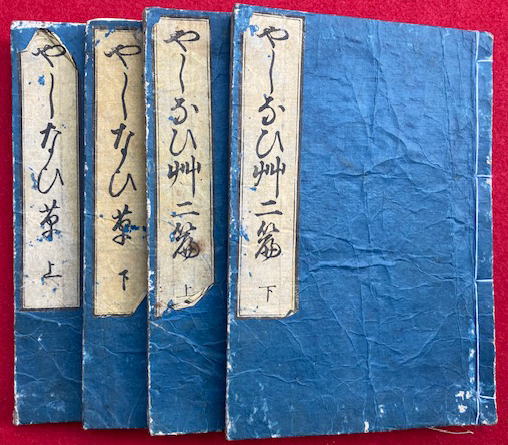 やしなひ草 上
やしなひ草 下
やしなひ艸二篇 上
やしなひ艸二篇 下